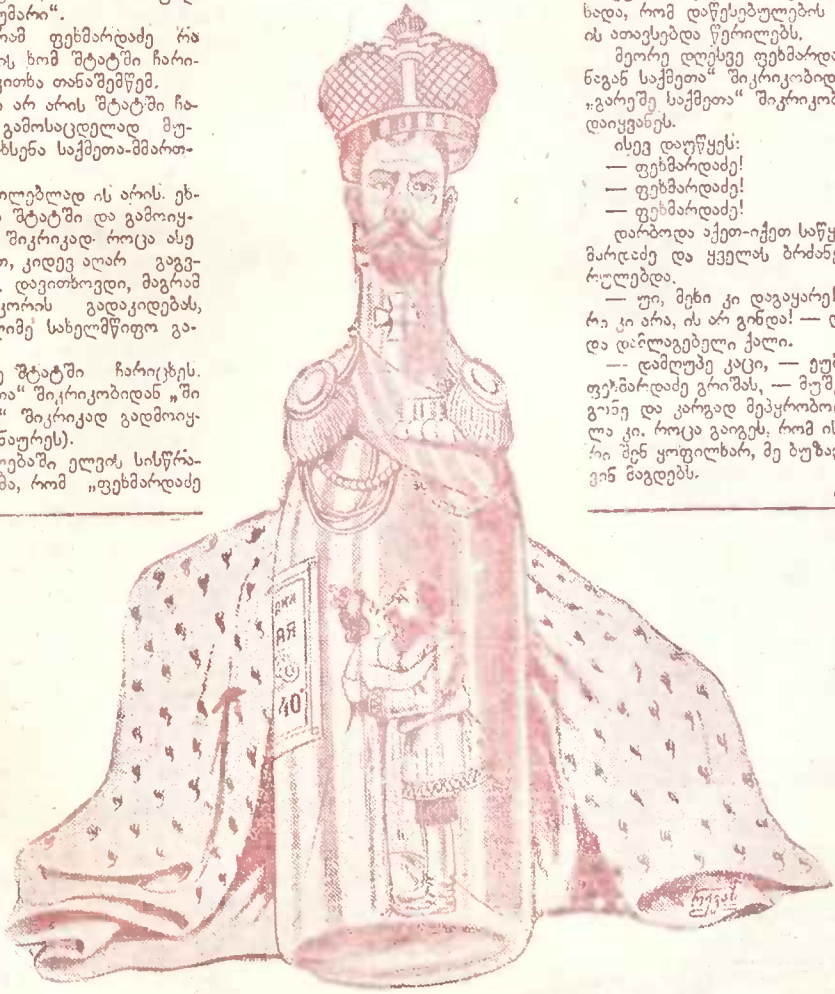 უმარი“.
რამ ფეხმარდაძე რა
ის ხომ შტატში ჩარი-
კითხა თანაშემწემ.
ი არ არის შტატში ჩა-
გამოსაცდელად მუ-
ხსენა საქმეთა-მმართ-
ილებლად ის არის. ეხ-
შტატში და გამოიყ-
შიკრიკად. როცა ასე
თ, კიდევ აღარ გაგვ-
დავითხოვდი, მაგრამ
კორის გადაკიდებას,
ღიმე სახელმწიფო გა-
ე შტატში ჩარიცხეს.
თა“ შიკრიკობიდან „ში
“ შიკრიკად გადმოიყ-
ნაურეს).
ლებაში ელვის სისწრა-
მა, რომ „ფეხმარდაძე
ხადა, რომ დაწესებულების
ის ათავსებდა წერილებს.
მეორე დღესვე ფეხმარდა
ნაგან საქმეთა“ შიკრიკობიდ
„გარეშე საქმეთა“ შიკრიკობ
დაიყვანეს.
ისევ დაუწყეს:
— ფეხმარდაძე!
— ფეხმარდაძე!
— ფეხმარდაძე!
დარბოდა აქეთ-იქეთ საწყ
მარდაძე და ყველას ბრძანე
რულებდა.
— უი, მეხი კი დაგაყარე!
რი კი არა, ის არ გინდა! —
და დამლაგებელი ქალი.
— დამღუპე კაცი, — ეუბ
ფეხმარდაძე გრიშას, — მუშკ
გონე და კარგად მეპყრობო
ლა კი. როცა გაიგეს, რომ ის
რი შენ ყოფილხარ, მე ბუზა
ვინ მაგდებს.
ВКА
АЯ
40°